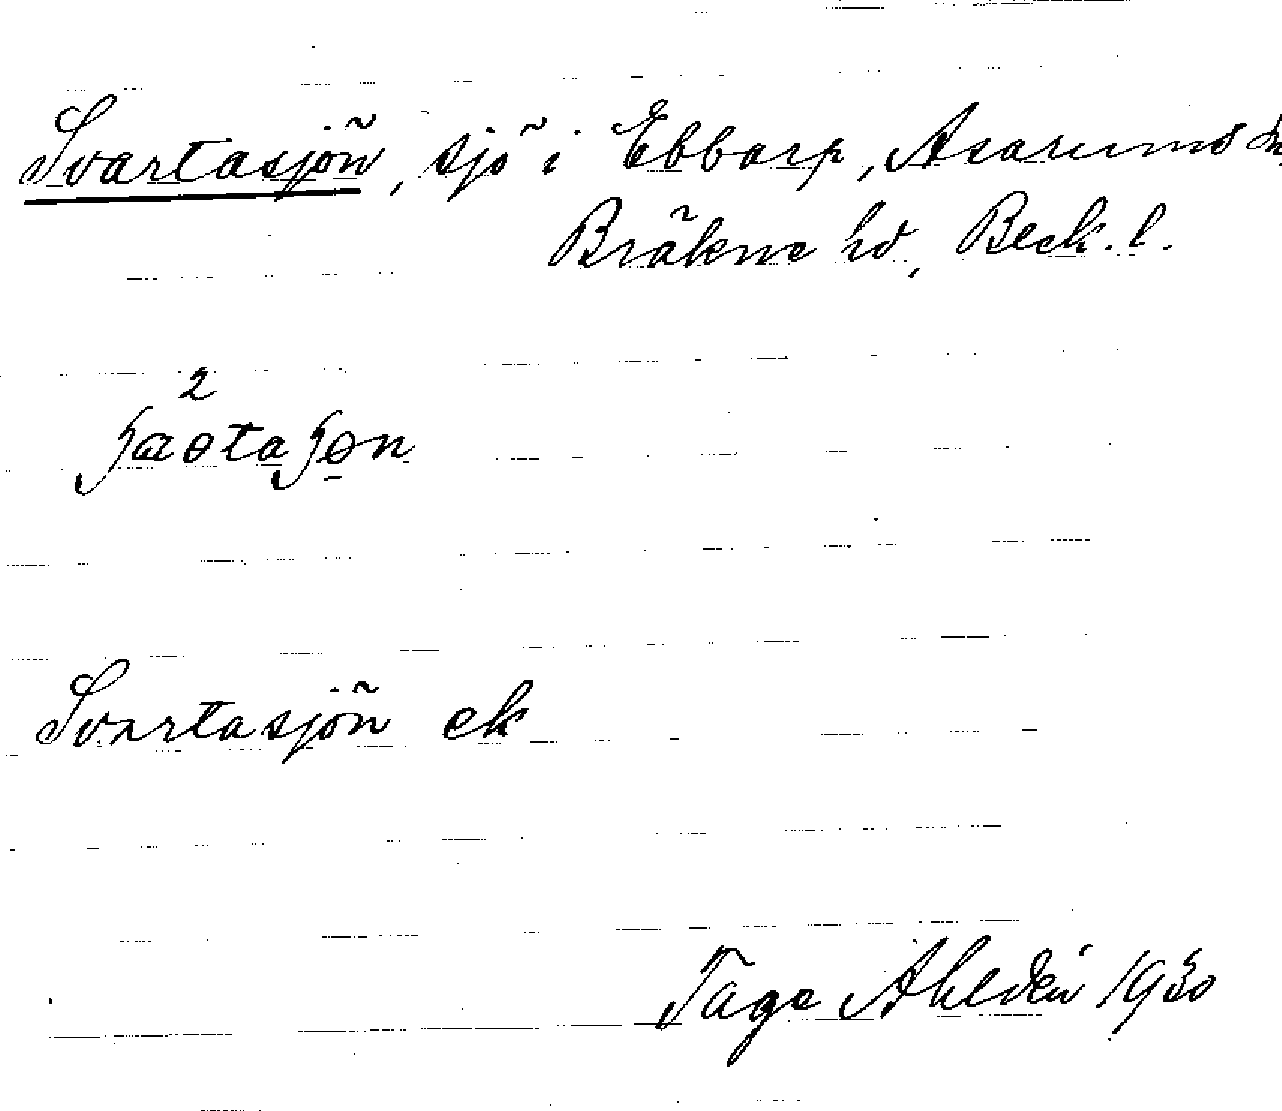 Svartasjön, sjö i Ebbarp, Asarums sn,
Bräkne hd, Bleck. l.
Svartasjön ek
Tage Ahldén 1930